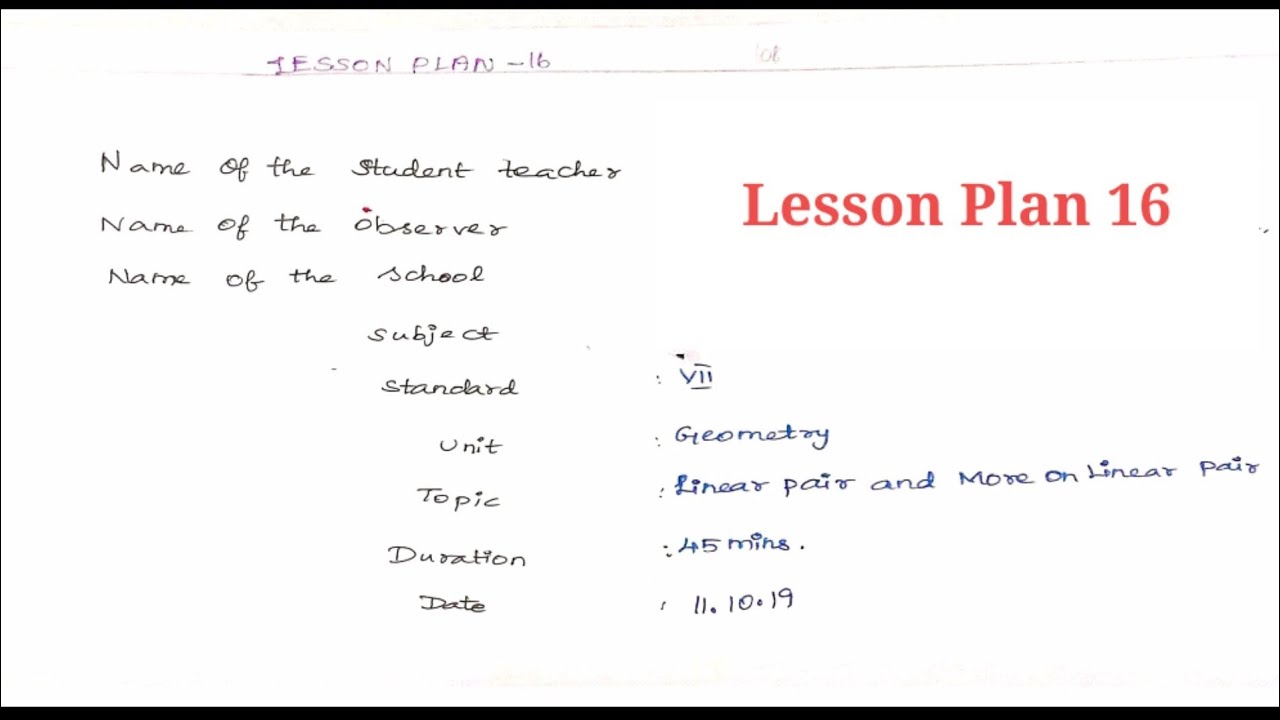 LESSON PLAN - 16
Name of the student teacher
Name of the observer
Lesson Plan 16
Name of the school
subject
standard : VII
Unit : Geometry
Topic : Linear pair and More on Linear pair
Duration : 45 mins.
Date : 11.10.19